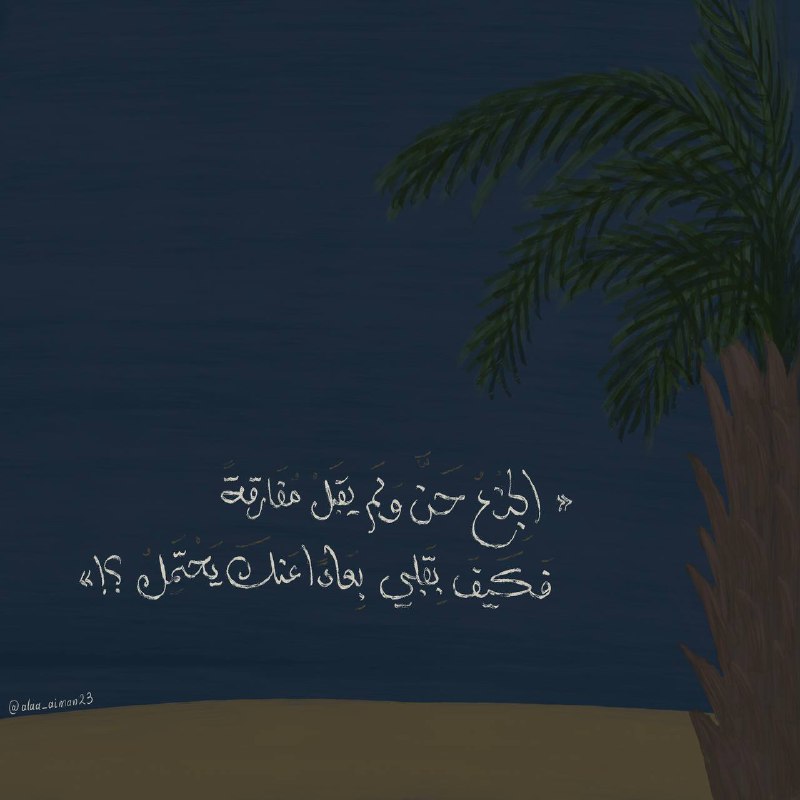 « الجِذْعُ حَنَّ وَلَم يَقبَلْ مُفَارَقَةً
فَكَيْفَ بِقَلبي بِعادًا عَنكَ يَحْتَمِلُ ؟! »
@alaa_aiman23